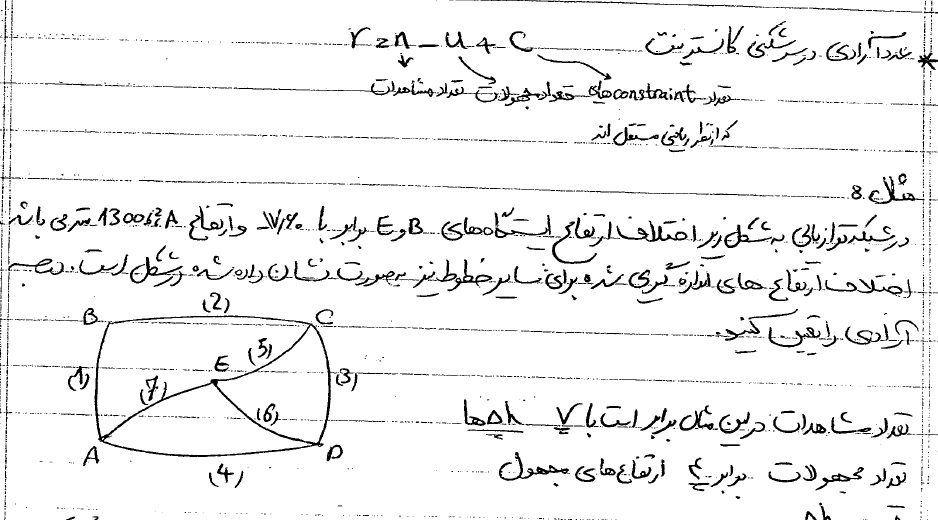 * عدد آزادی در سرشکنی کانسترینت r = n - u + c
تعداد constraint های تعداد مجهولات تعداد مشاهدات
که از نظر ریاضی مستقل اند
مثال 8
در شبکه ترازیابی به شکل زیر اختلاف ارتفاع ایستگاه های B و E برابر با و ارتفاع A متر می باشد
اختلاف ارتفاع های اندازه گیری شده برای سایر خطوط نیز به صورت نشان داده شده در شکل است. درجه
آزادی را تعیین کنید.
B (2) C
(5)
E
(1) (7) (3)
(6)
A D
(4)
تعداد مشاهدات در این مثال برابر است با ۷ Δh ها
تعداد مجهولات برابر ۴ ارتفاع های مجهول
Δh